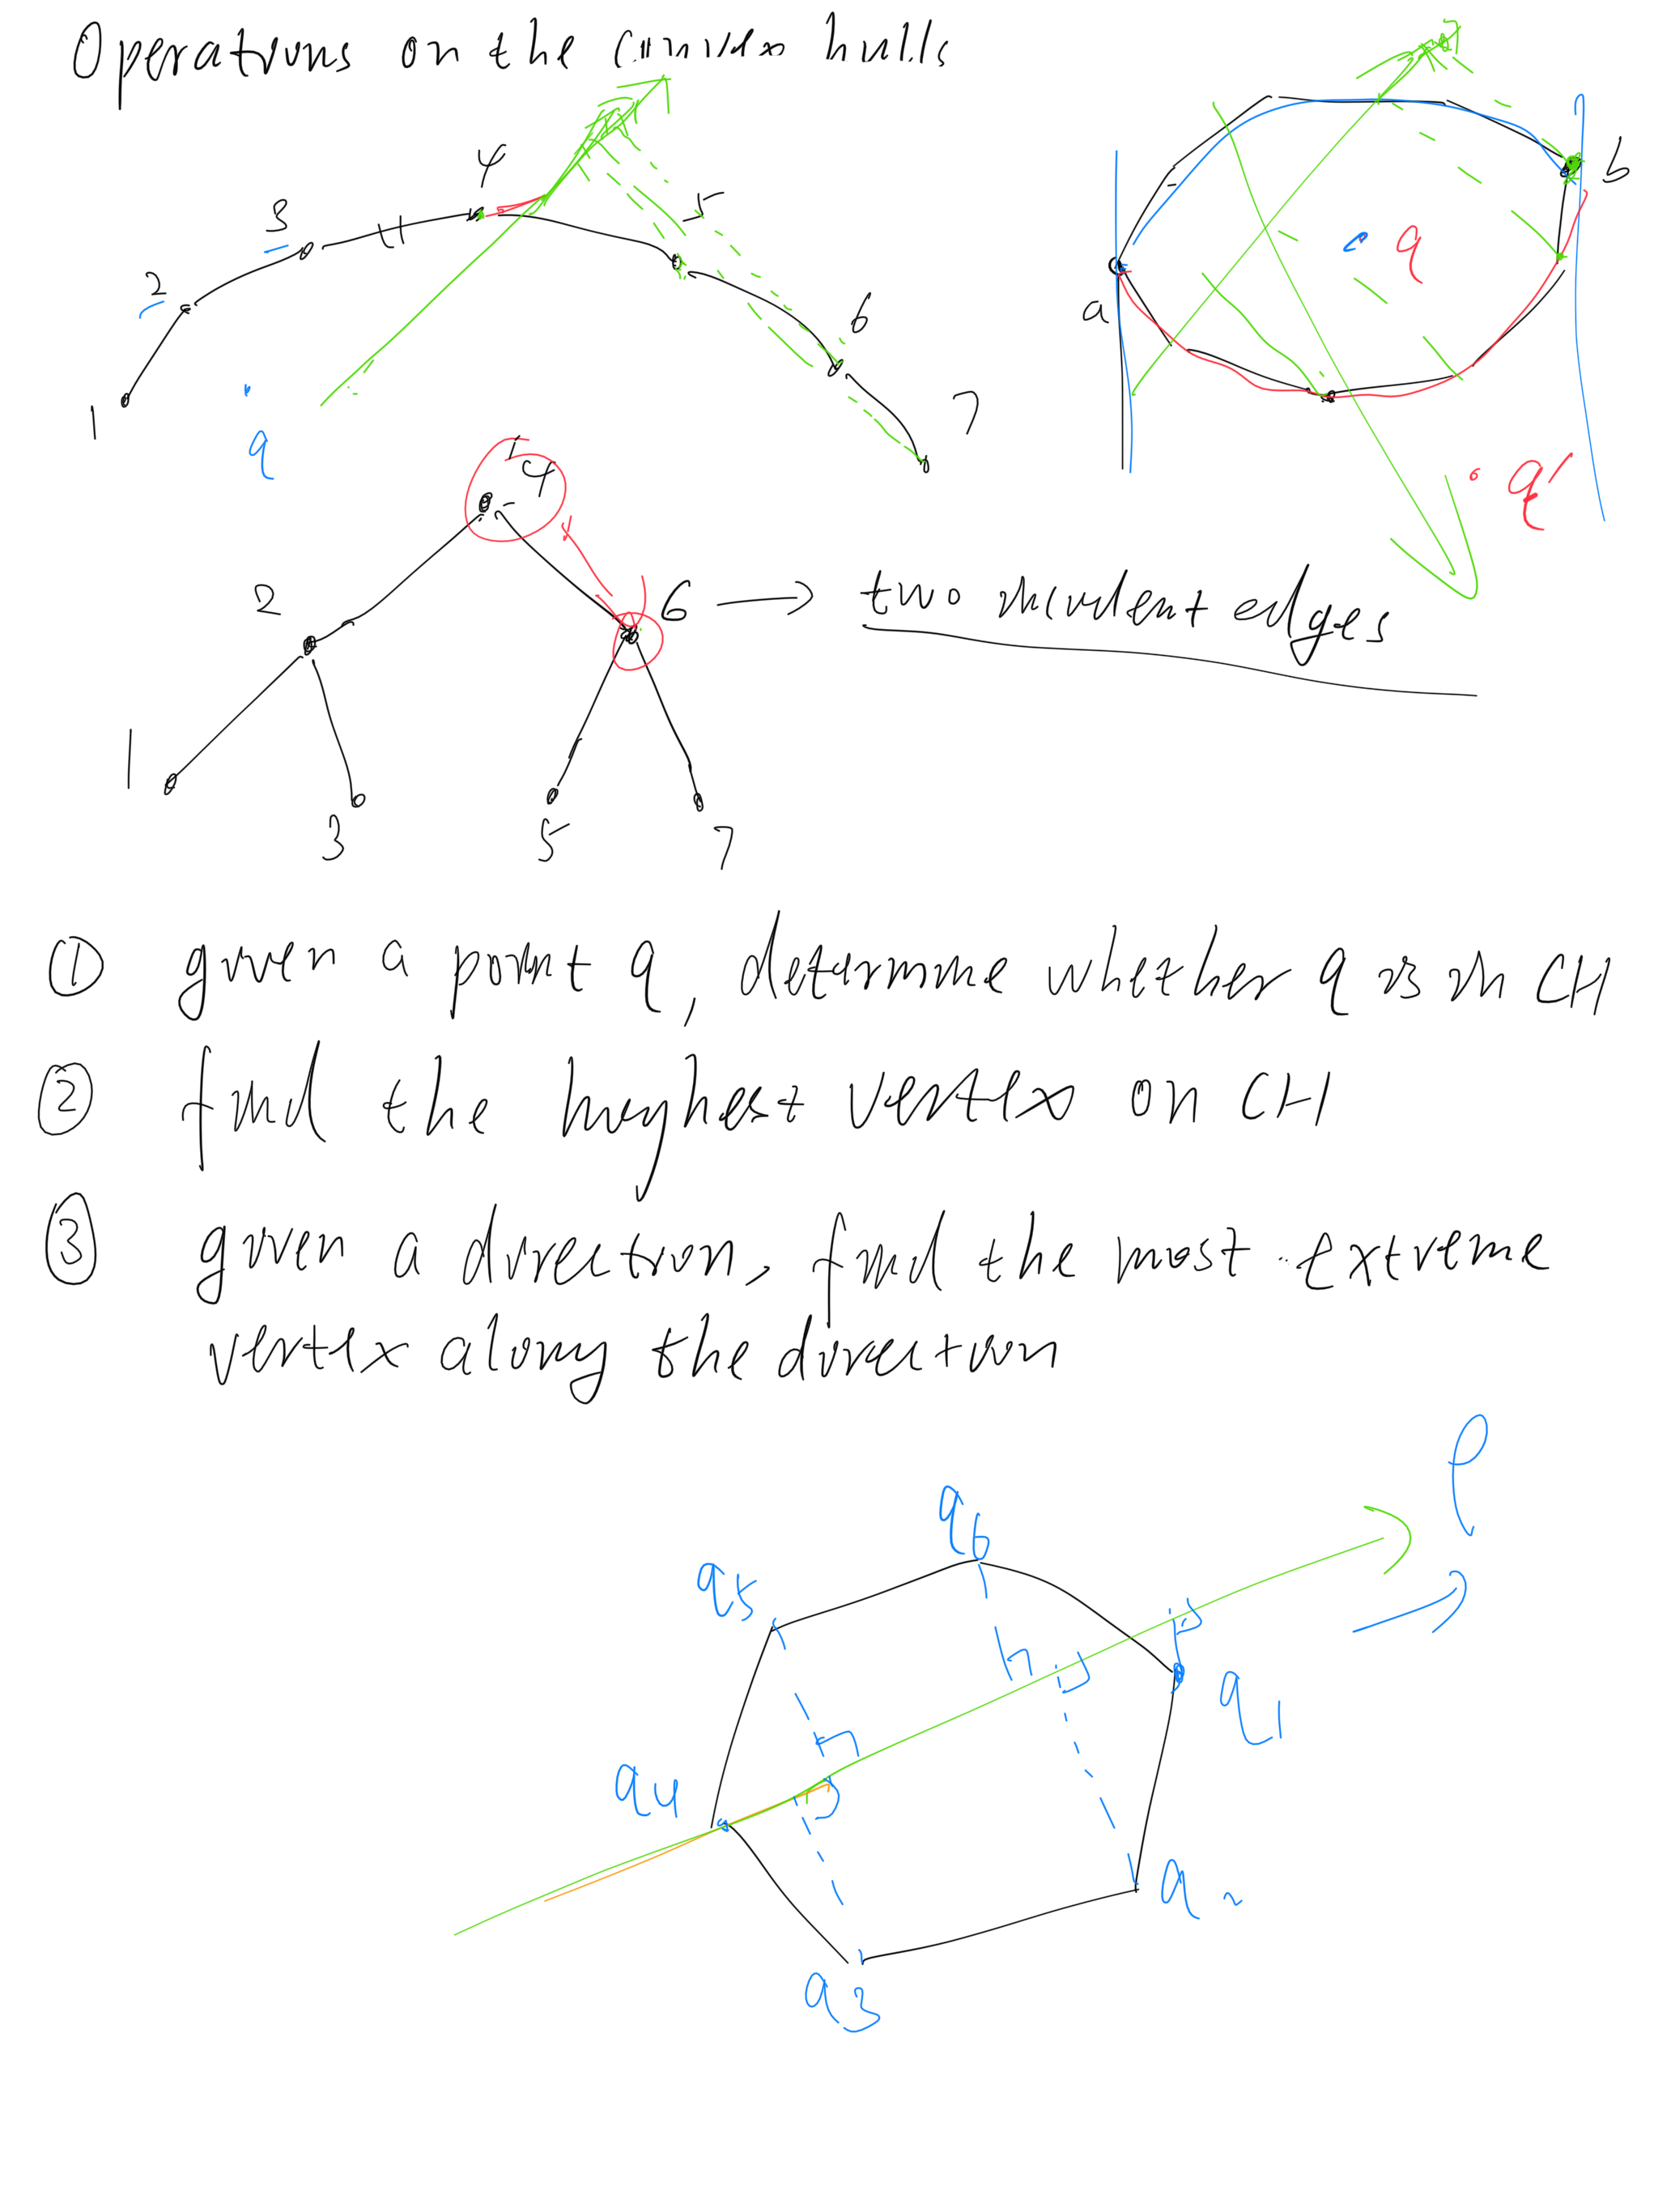 Operations on the convex hulls
4
3
5
2
6
1
7
q
b
q
a
q'
4
2
6 → two incident edges
1
3
5
7
① given a point q, determine whether q is in CH
② find the highest vertex on CH
③ given a direction, find the most extreme
vertex along the direction
ρ
q6
q5
q1
q4
q2
q3